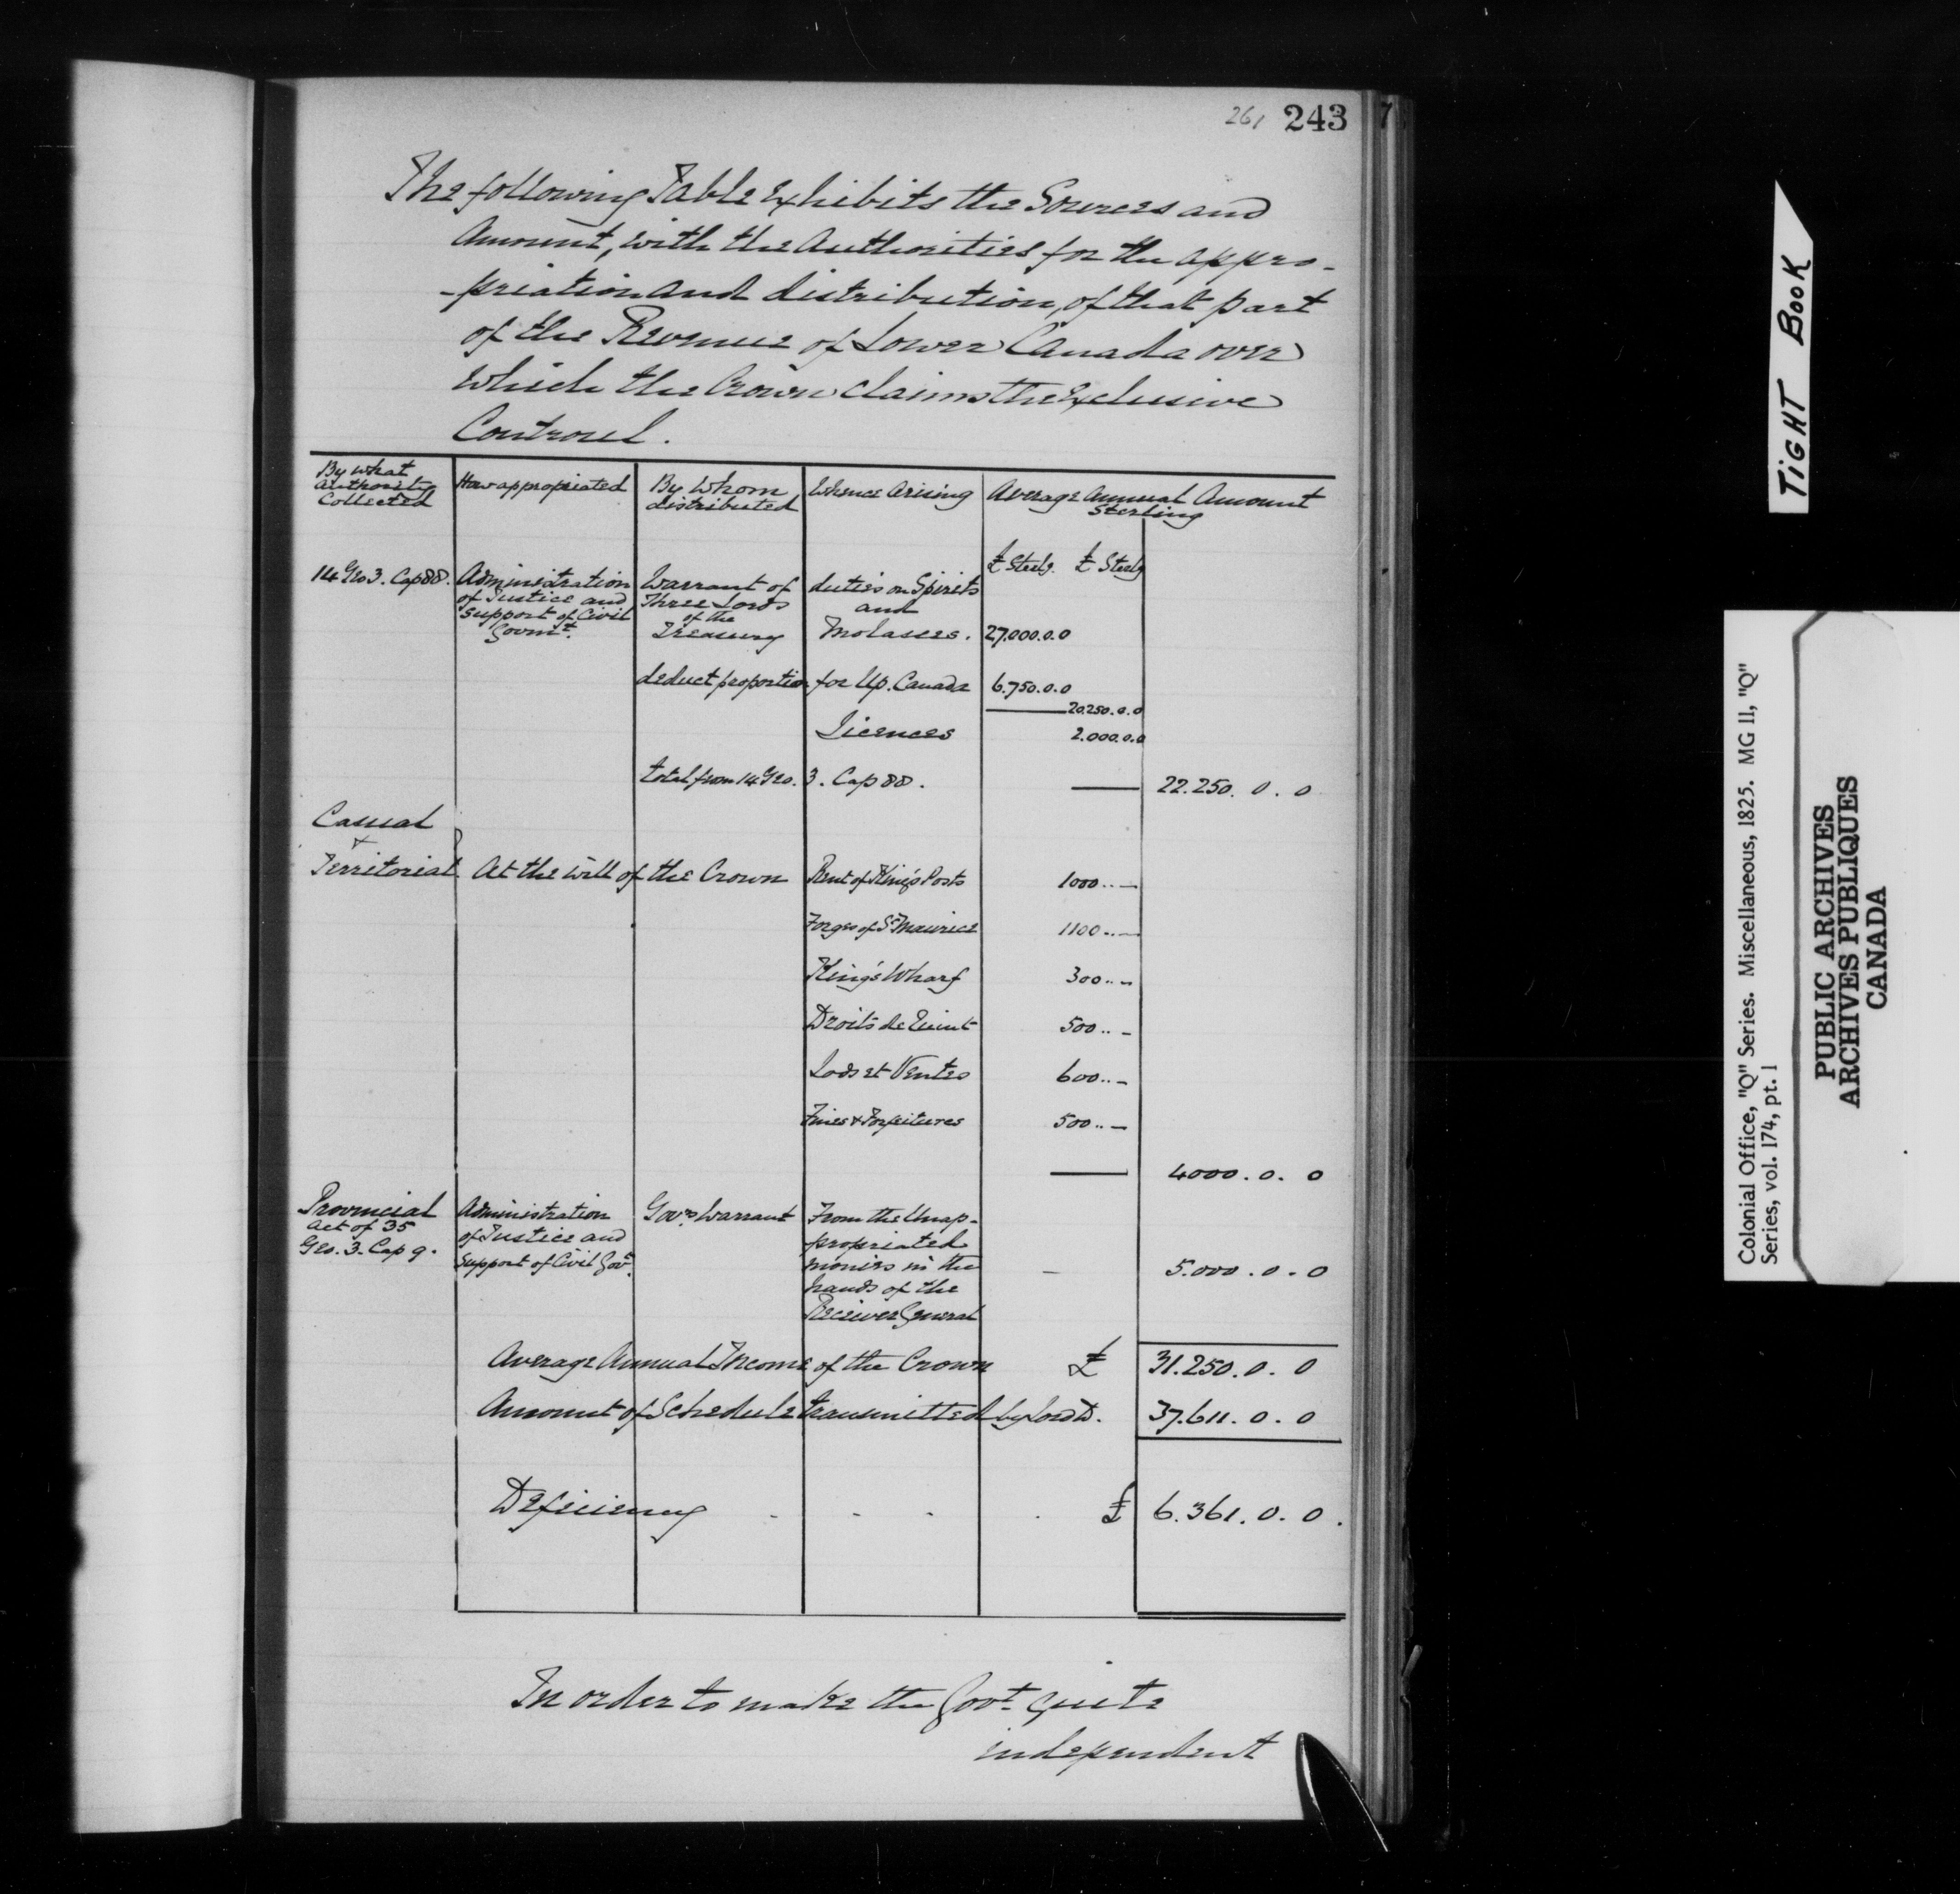 261 243
The following Table Exhibits the Sources and
Amount, with the Authorities for the appro-
-priation and distribution, of that part
of the Revenue of Lower Canada over
which the Crown claims the Exclusive
Controul.
By what Authority Collected | How appropriated | By Whom distributed | Whence Arising | Average Annual Amount Sterling
£ Sterlg. £ Sterlg
14 Geo 3. Cap 88. | Administration of Justice and support of Civil Govmt. | Warrant of Three Lords of the Treasury | duties on Spirits and Molasses. | 27,000.0.0
deduct proportion for Up. Canada 6.750.0.0
20.250.0.0
Licences 2.000.0.0
total from 14 Geo. 3. Cap 88. — 22.250.0.0
Casual
&
Territorial At the will of the Crown Rent of King's Posts 1000..—
Forges of St Maurice 1100..—
King's Wharf 300..—
Droits de Quint 500..—
Lods et Ventes 600..—
Fines & Forfeitures 500..—
4000.0.0
Provincial Act of 35 Geo. 3. Cap 9. | Administration of Justice and Support of Civil Govt. | Govrs Warrant | From the Unap-
propriated
monies in the
hands of the
Receiver General — 5.000.0.0
Average Annual Income of the Crown £ 31.250.0.0
Amount of Schedule transmitted by Lord D. 37.611.0.0
Deficiency - - - . £ 6.361.0.0.
In order to make the Govt. quite
independent
TIGHT BOOK
Colonial Office, "Q" Series. Miscellaneous, 1825. MG 11, "Q"
Series, vol. 174, pt. 1
PUBLIC ARCHIVES
ARCHIVES PUBLIQUES
CANADA